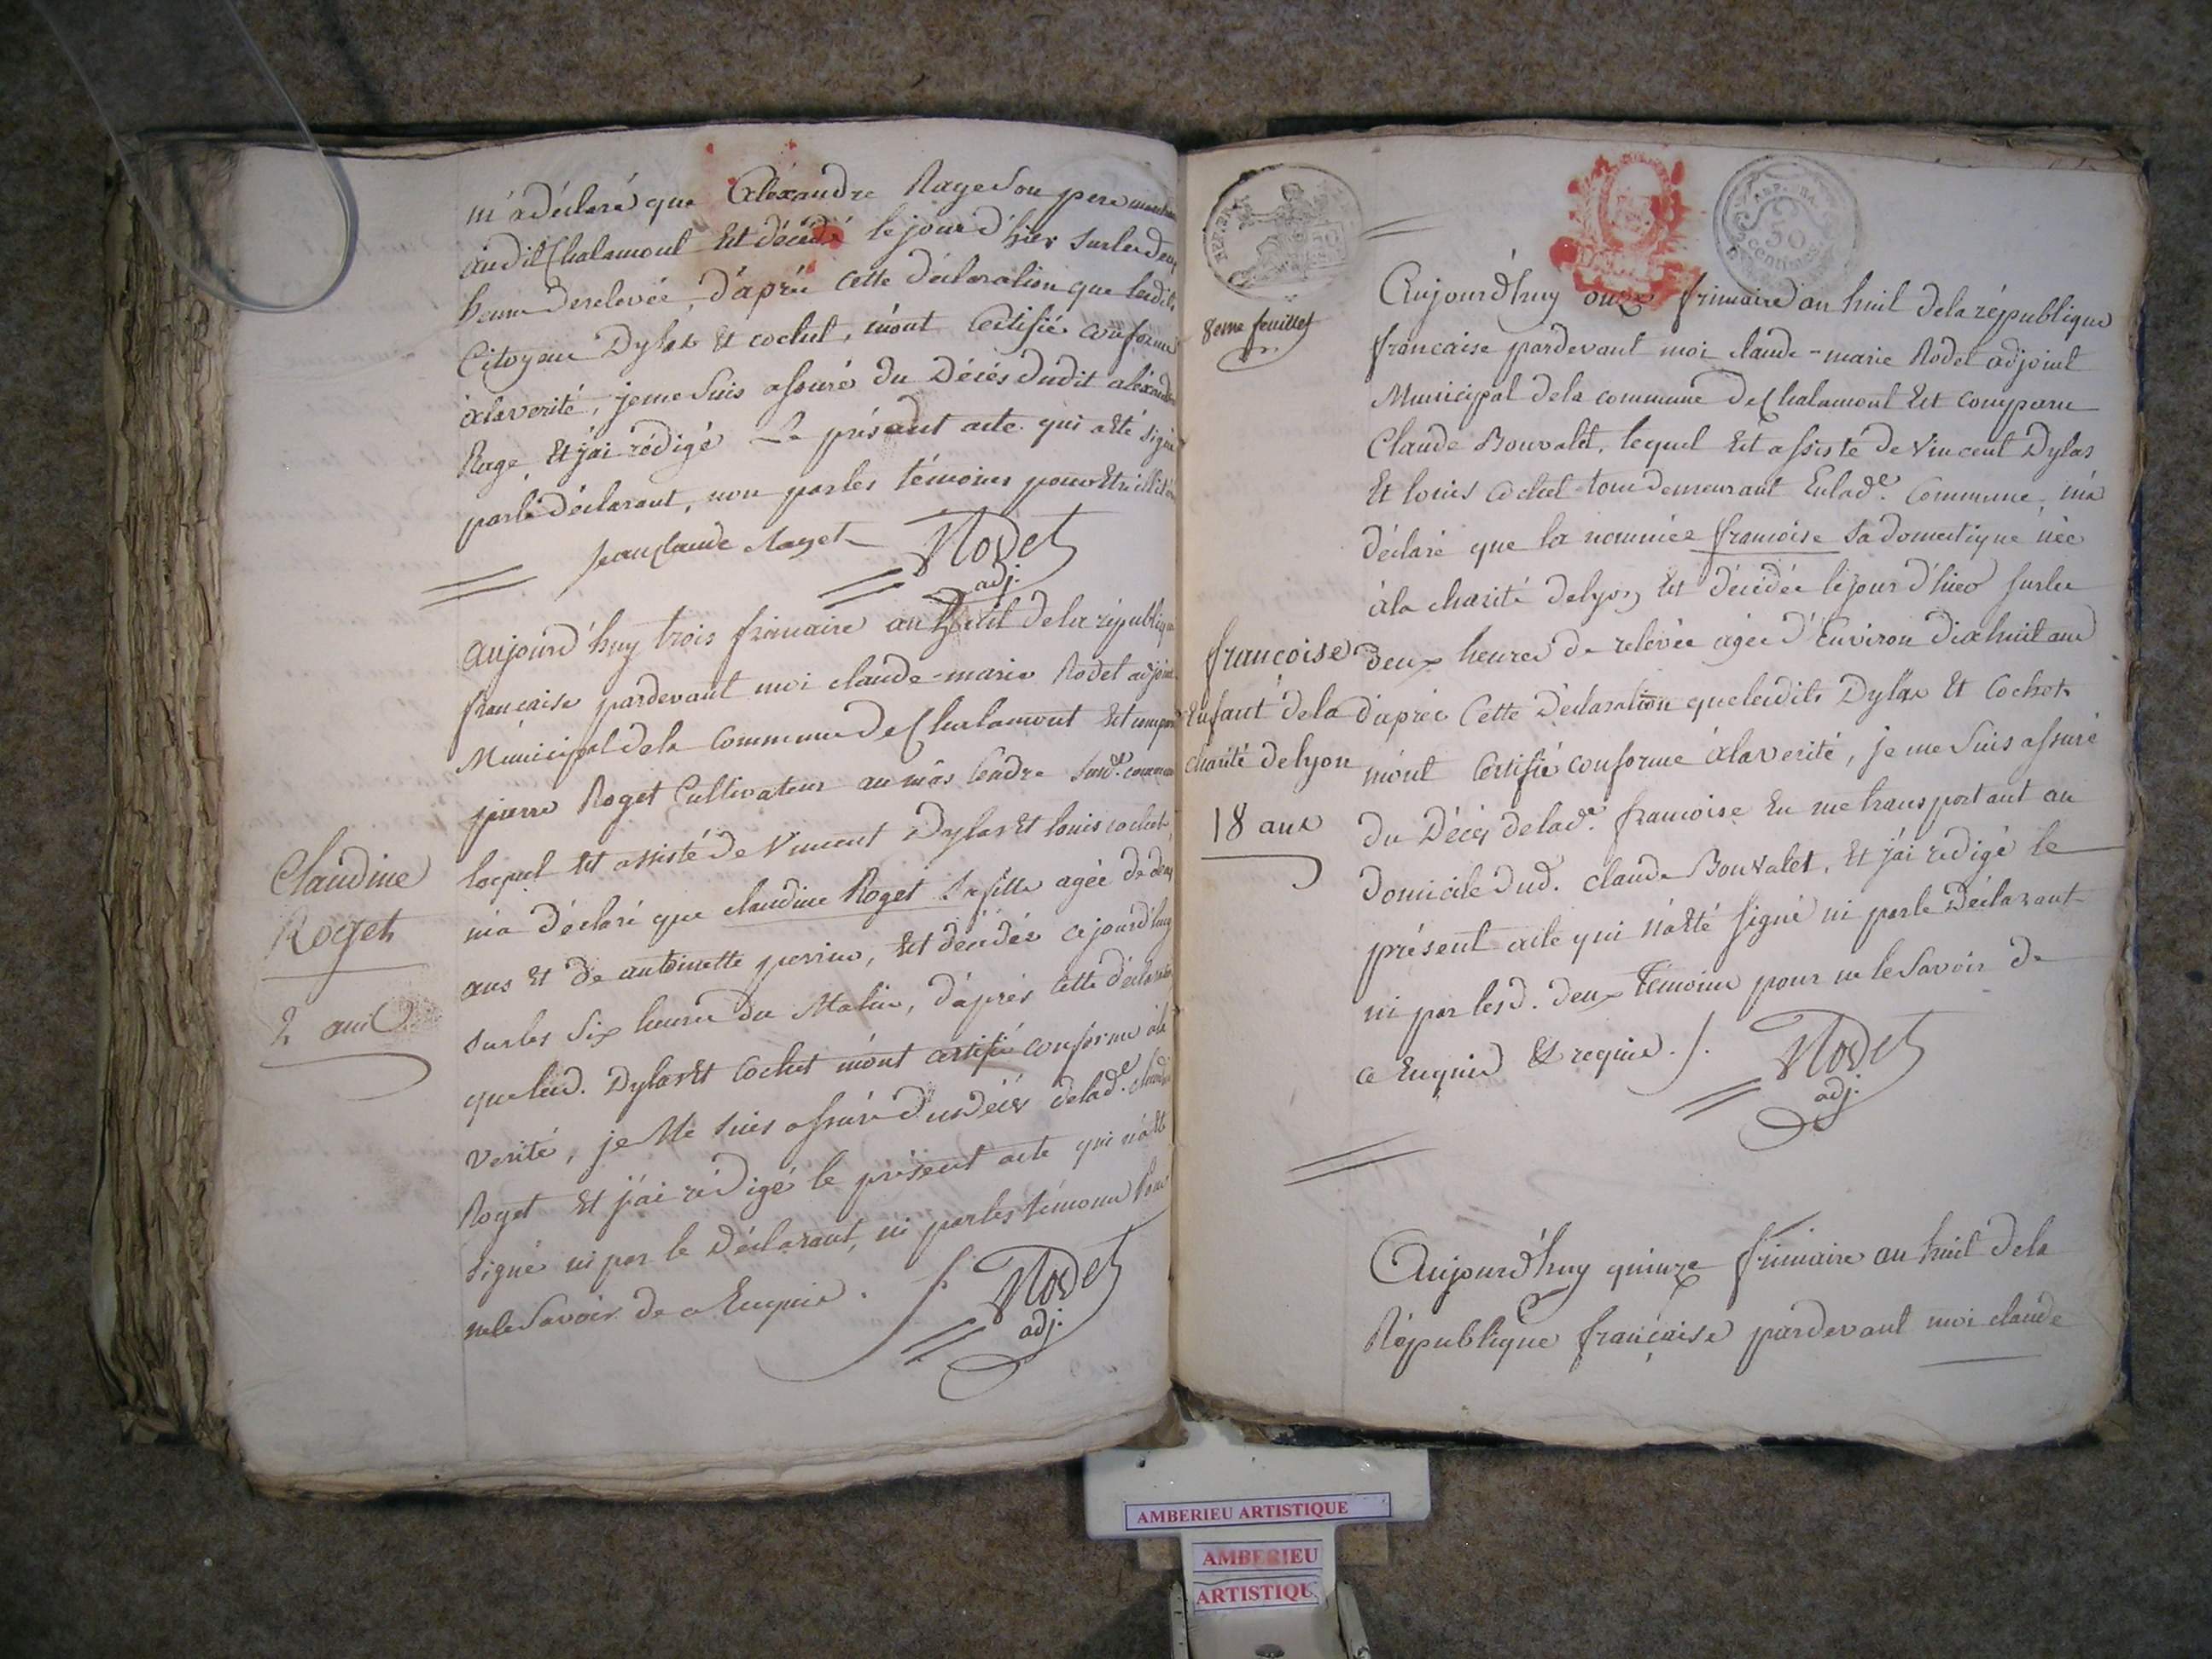 m'a déclaré que Aléxandre Rage son pere
audit Chalamont Est décédé le jour d'hier sur les deux
heures de relevée, d'aprés cette déclaration que lesdits
Citoyens Dylas Et cochet, m'ont Certifié conforme
à la verité, je me suis assuré du Décés dudit aléxandre
Rage, Et j'ai rédigé Le présent acte qui a été signé
par le déclarant, non par les témoins pour
jean claude Raget Rodet
adj.
aujourd'huy trois frimaire an huit de la républiq
francaise pardevant moi claude-marie Rodet adjoint
Municipal de la commune de Chalamont Est comparu
pierre Roget Cultivateur au mâs
lequel Est assisté de Vincent Dylas Et louis cochet
m'a déclaré que claudine Roget sa fille agée de deux
ans Et de antoinette perrin, Est décédée ce jourd'huy
sur les six heures du Matin, d'après cette déclaration
que lesd. Dylas Et Cochet m'ont certifié conforme à la
verité, je Me suis assuré du décès de lad.e claudine
Roget Et j'ai rédigé le présent acte qui n'a Eté
signé ni par le Déclarant, ni par les témoins pour
ne le savoir de ce Enquis. Rodet
adj.
Claudine
Roget
2 ans
REP. FRA.
50
centimes
8eme feuillet
Aujourd'huy onze frimaire an huit de la république
francaise pardevant moi claude-marie Rodet adjoint
Municipal de la commune de Chalamont Est comparu
Claude Bouvalet, lequel Est assisté de Vincent Dylas
Et louis Cochet tous demeurant En lad.e Commune, m'a
déclaré que la nommée francoise sa domestique née
à la charité de lyon, Est décédée le jour d'hier sur les
deux heures de relevée agée d'Environ dix huit ans
d'après Cette Déclaration que lesdits Dylas Et Cochet
m'ont Certifié conforme à la verité, je me suis assuré
du Décés de lad.e francoise En me transportant au
domicile dud. claude Bouvalet, Et j'ai redigé le
présent acte qui n'a Eté signé ni par le Déclarant
ni par lesd. deux Témoins pour ne le savoir de
ce Enquis Et requis ./. Rodet
adj.
françoise
Enfant de la
charité de lyon
18 ans
Aujourd'huy quinze frimaire an huit de la
République française pardevant moi claude
AMBERIEU ARTISTIQUE
AMBERIEU
ARTISTIQU